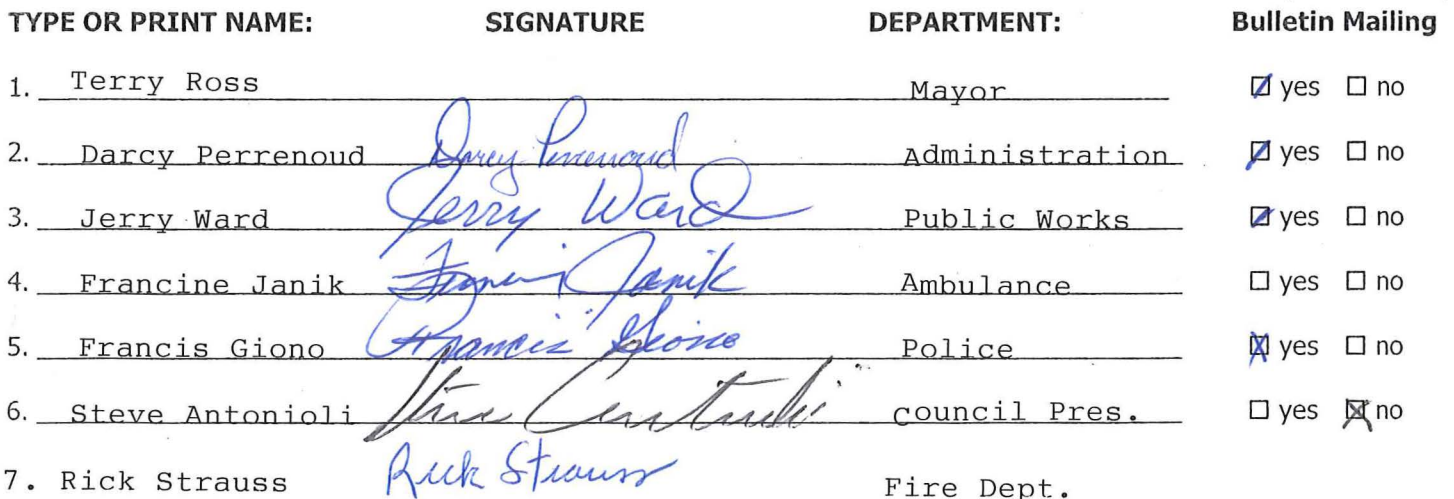 TYPE OR PRINT NAME: SIGNATURE DEPARTMENT: Bulletin Mailing
1. Terry Ross Mayor ☑ yes ☐ no
2. Darcy Perrenoud Darcy Perrenoud Administration ☑ yes ☐ no
3. Jerry Ward Jerry Ward Public Works ☑ yes ☐ no
4. Francine Janik Francine Janik Ambulance ☐ yes ☐ no
5. Francis Giono Francis Giono Police ☒ yes ☐ no
6. Steve Antonioli Steve Antonioli council Pres. ☐ yes ☒ no
7. Rick Strauss Rick Strauss Fire Dept.